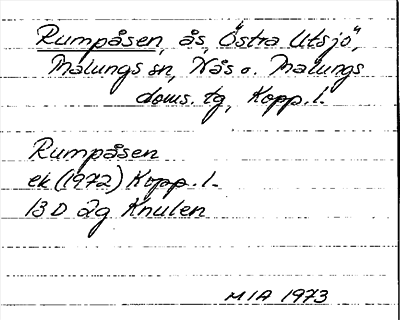 Rumpåsen, ås, "Östra Utsjö",
Malungs sn, Nås o. Malungs
doms. tg, Kopp. l.
Rumpåsen
ek (1972) Kopp. l.
13 D 2g Knulen
MIA 1973